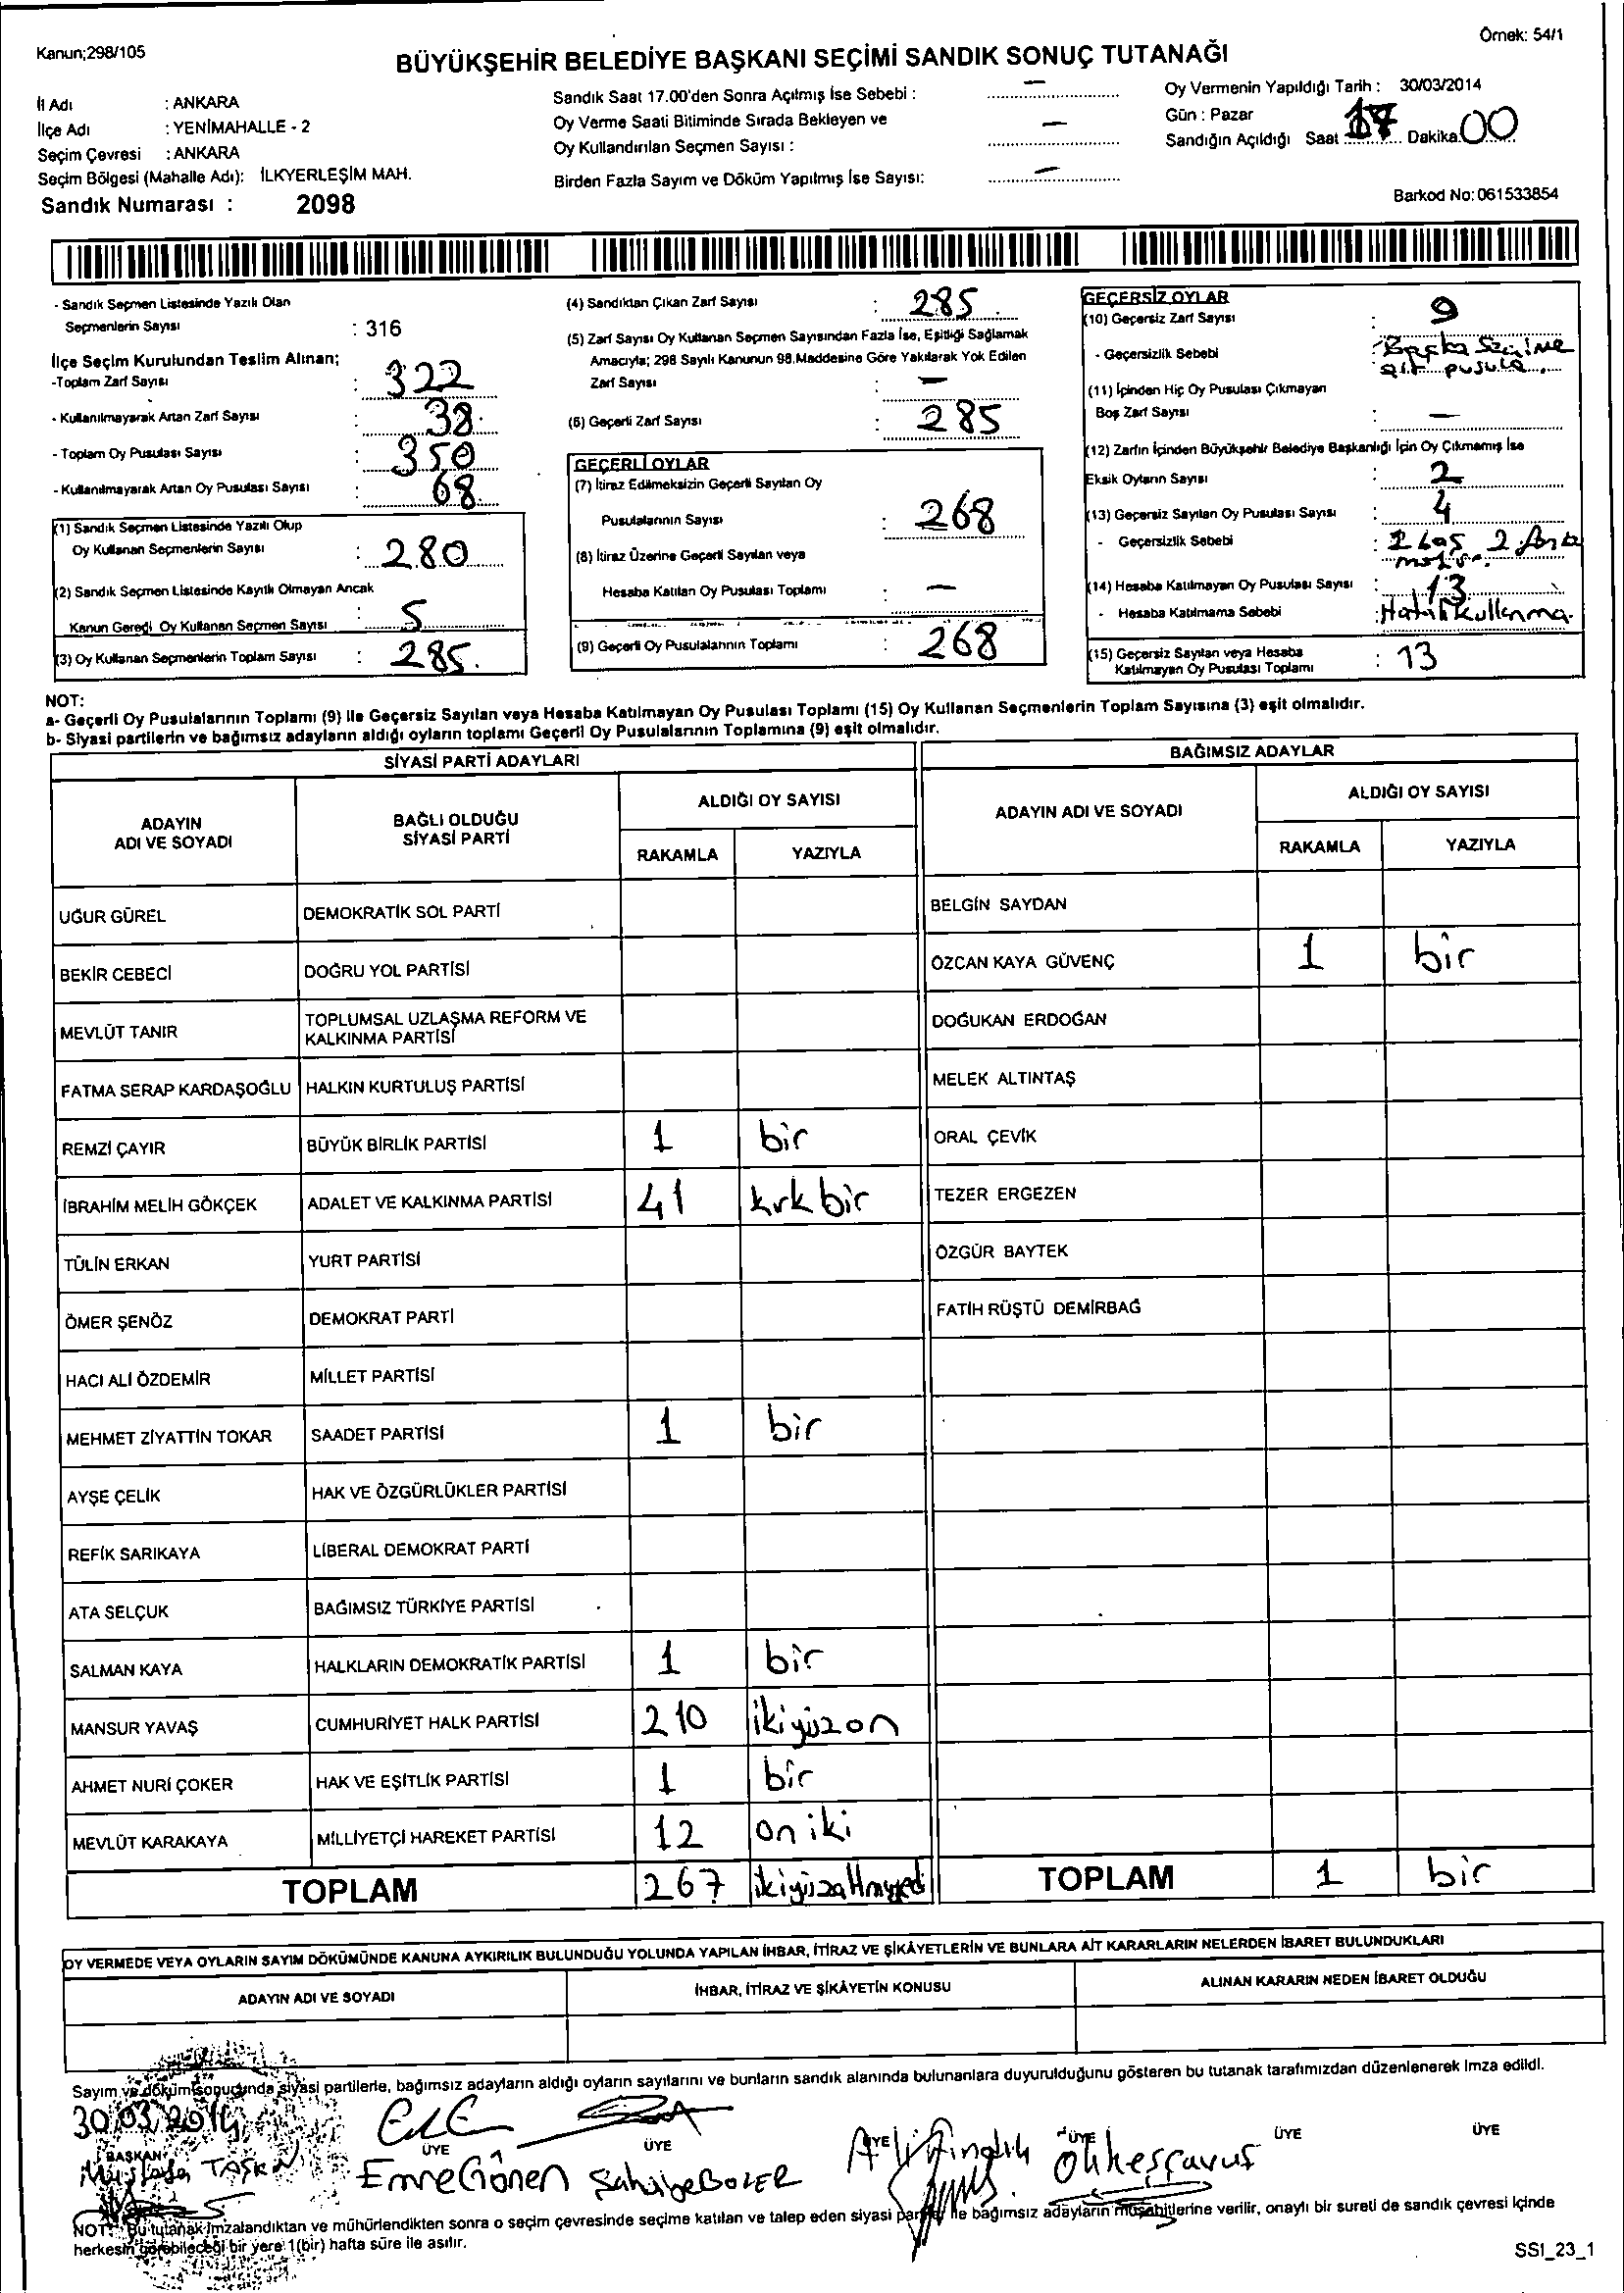 Kanun;298/105
Örnek: 54/1
BÜYÜKŞEHİR BELEDİYE BAŞKANI SEÇİMİ SANDIK SONUÇ TUTANAĞI
İl Adı : ANKARA
İlçe Adı : YENİMAHALLE - 2
Seçim Çevresi : ANKARA
Seçim Bölgesi (Mahalle Adı): İLKYERLEŞİM MAH.
Sandık Numarası : 2098
Sandık Saat 17.00'den Sonra Açılmış İse Sebebi : —
Oy Verme Saati Bitiminde Sırada Bekleyen ve
Oy Kullandırılan Seçmen Sayısı : —
Birden Fazla Sayım ve Döküm Yapılmış İse Sayısı: —
Oy Vermenin Yapıldığı Tarih : 30/03/2014
Gün : Pazar
Sandığın Açıldığı Saat 17 Dakika 00
Barkod No: 061533854
- Sandık Seçmen Listesinde Yazılı Olan
Seçmenlerin Sayısı : 316
İlçe Seçim Kurulundan Teslim Alınan;
-Toplam Zarf Sayısı : 322
- Kullanılmayarak Artan Zarf Sayısı : 38
- Toplam Oy Pusulası Sayısı : 350
- Kullanılmayarak Artan Oy Pusulası Sayısı : 68
(1) Sandık Seçmen Listesinde Yazılı Olup
Oy Kullanan Seçmenlerin Sayısı : 280
(2) Sandık Seçmen Listesinde Kayıtlı Olmayan Ancak
Kanun Gereği Oy Kullanan Seçmen Sayısı : 5
(3) Oy Kullanan Seçmenlerin Toplam Sayısı : 285
(4) Sandıktan Çıkan Zarf Sayısı : 285
(5) Zarf Sayısı Oy Kullanan Seçmen Sayısından Fazla İse, Eşitliği Sağlamak
Amacıyla; 298 Sayılı Kanunun 98.Maddesine Göre Yakılarak Yok Edilen
Zarf Sayısı : —
(6) Geçerli Zarf Sayısı : 285
GEÇERLİ OYLAR
(7) İtiraz Edilmeksizin Geçerli Sayılan Oy
Pusulalarının Sayısı : 268
(8) İtiraz Üzerine Geçerli Sayılan veya
Hesaba Katılan Oy Pusulası Toplamı : —
(9) Geçerli Oy Pusulalarının Toplamı : 268
GEÇERSİZ OYLAR
(10) Geçersiz Zarf Sayısı : 9
- Geçersizlik Sebebi : Başka Seçime
ait pusula
(11) İçinden Hiç Oy Pusulası Çıkmayan
Boş Zarf Sayısı : —
(12) Zarfın İçinden Büyükşehir Belediye Başkanlığı İçin Oy Çıkmamış İse
Eksik Oyların Sayısı : 2
(13) Geçersiz Sayılan Oy Pusulası Sayısı : 4
- Geçersizlik Sebebi : 2 boş 2
(14) Hesaba Katılmayan Oy Pusulası Sayısı : 13
- Hesaba Katılmama Sebebi : Hatalı kullanma.
(15) Geçersiz Sayılan veya Hesaba
Katılmayan Oy Pusulası Toplamı : 13
NOT:
a- Geçerli Oy Pusulalarının Toplamı (9) ile Geçersiz Sayılan veya Hesaba Katılmayan Oy Pusulası Toplamı (15) Oy Kullanan Seçmenlerin Toplam Sayısına (3) eşit olmalıdır.
b- Siyasi partilerin ve bağımsız adayların aldığı oyların toplamı Geçerli Oy Pusulalarının Toplamına (9) eşit olmalıdır.
SİYASİ PARTİ ADAYLARI
ADAYIN
ADI VE SOYADI
BAĞLI OLDUĞU
SİYASİ PARTİ
ALDIĞI OY SAYISI
RAKAMLA YAZIYLA
UĞUR GÜREL DEMOKRATİK SOL PARTİ
BEKİR CEBECİ DOĞRU YOL PARTİSİ
MEVLÜT TANIR TOPLUMSAL UZLAŞMA REFORM VE
KALKINMA PARTİSİ
FATMA SERAP KARDAŞOĞLU HALKIN KURTULUŞ PARTİSİ
REMZİ ÇAYIR BÜYÜK BİRLİK PARTİSİ 1 bir
İBRAHİM MELİH GÖKÇEK ADALET VE KALKINMA PARTİSİ 41 kırk bir
TÜLİN ERKAN YURT PARTİSİ
ÖMER ŞENÖZ DEMOKRAT PARTİ
HACI ALİ ÖZDEMİR MİLLET PARTİSİ
MEHMET ZİYATTİN TOKAR SAADET PARTİSİ 1 bir
AYŞE ÇELİK HAK VE ÖZGÜRLÜKLER PARTİSİ
REFİK SARIKAYA LİBERAL DEMOKRAT PARTİ
ATA SELÇUK BAĞIMSIZ TÜRKİYE PARTİSİ
SALMAN KAYA HALKLARIN DEMOKRATİK PARTİSİ 1 bir
MANSUR YAVAŞ CUMHURİYET HALK PARTİSİ 210 ikiyüzon
AHMET NURİ ÇOKER HAK VE EŞİTLİK PARTİSİ 1 bir
MEVLÜT KARAKAYA MİLLİYETÇİ HAREKET PARTİSİ 12 on iki
TOPLAM 267 ikiyüzaltmışyedi
BAĞIMSIZ ADAYLAR
ADAYIN ADI VE SOYADI
ALDIĞI OY SAYISI
RAKAMLA YAZIYLA
BELGİN SAYDAN
ÖZCAN KAYA GÜVENÇ 1 bir
DOĞUKAN ERDOĞAN
MELEK ALTINTAŞ
ORAL ÇEVİK
TEZER ERGEZEN
ÖZGÜR BAYTEK
FATİH RÜŞTÜ DEMİRBAĞ
TOPLAM 1 bir
OY VERMEDE VEYA OYLARIN SAYIM DÖKÜMÜNDE KANUNA AYKIRILIK BULUNDUĞU YOLUNDA YAPILAN İHBAR, İTİRAZ VE ŞİKÂYETLERİN VE BUNLARA AİT KARARLARIN NELERDEN İBARET BULUNDUKLARI
ADAYIN ADI VE SOYADI
İHBAR, İTİRAZ VE ŞİKÂYETİN KONUSU
ALINAN KARARIN NEDEN İBARET OLDUĞU
Sayım ve döküm sonucunda siyasi partilerle, bağımsız adayların aldığı oyların sayılarını ve bunların sandık alanında bulunanlara duyurulduğunu gösteren bu tutanak tarafımızdan düzenlenerek imza edildi.
30.03.2014
BAŞKAN ÜYE ÜYE ÜYE ÜYE ÜYE ÜYE
Mustafa TAŞKIN Emre Gönen Ali Fındık
NOT: Bu tutanak imzalandıktan ve mühürlendikten sonra o seçim çevresinde seçime katılan ve talep eden siyasi partiler ile bağımsız adayların müşahitlerine verilir, onaylı bir sureti de sandık çevresi içinde
herkesin görebileceği bir yere 1(bir) hafta süre ile asılır.
SSI_23_1